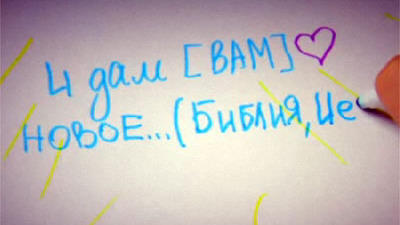 И дам [ВАМ]
НОВОЕ...(БИБЛИЯ, Ие